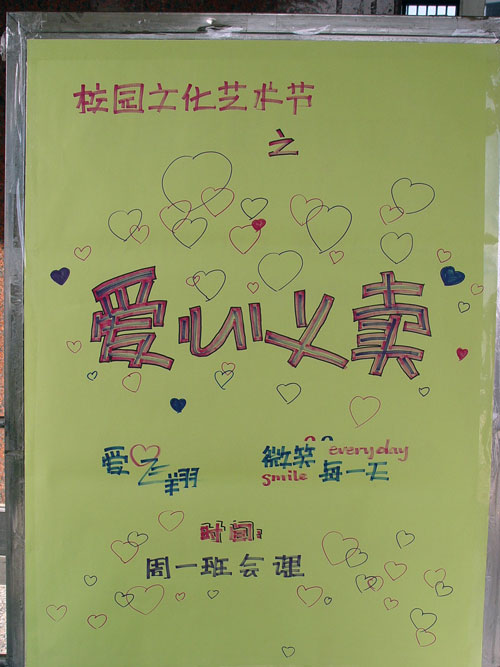 校园文化艺术节
之
爱心义卖
爱 飞翔
微笑 everyday
smile 每一天
时间:
周一班会课